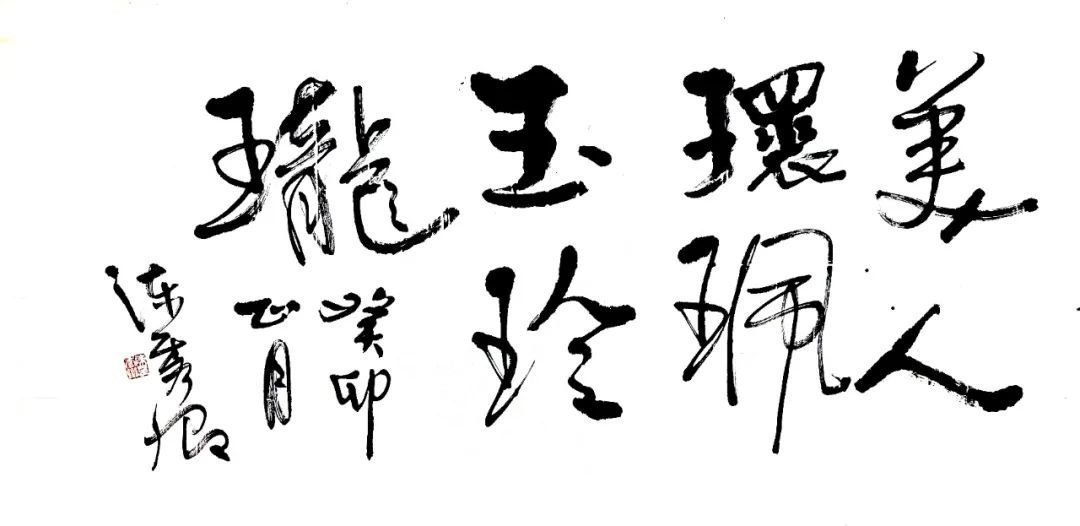 美人
環珮
玉玲
瓏
癸卯
正月